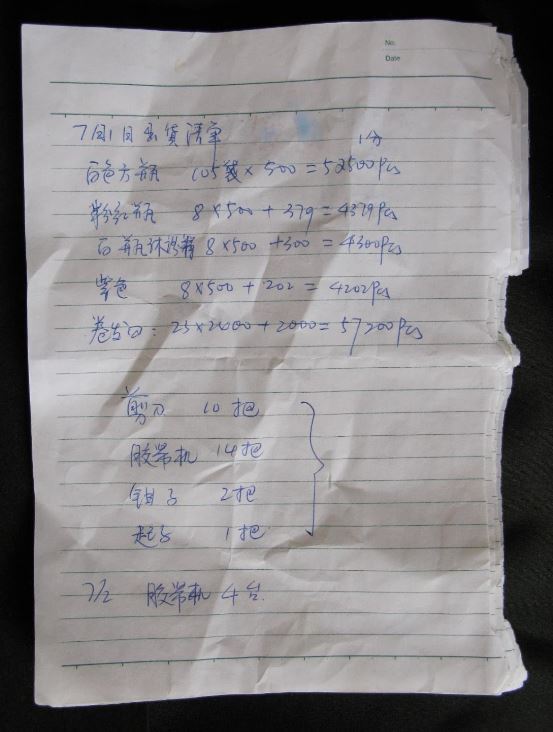 No.
Date
7月1日出货清单
1分
白色方瓶 105袋×500=52500Pcs
粉红瓶 8×500+379=4379Pcs
白瓶 8×500+300=4300Pcs
紫色 8×500+202=4202Pcs
卷发: 23×2400+2000=57200Pcs
剪刀 10把
胶带机 14把
钳子 2把
起子 1把
7/2 胶带机 4台.